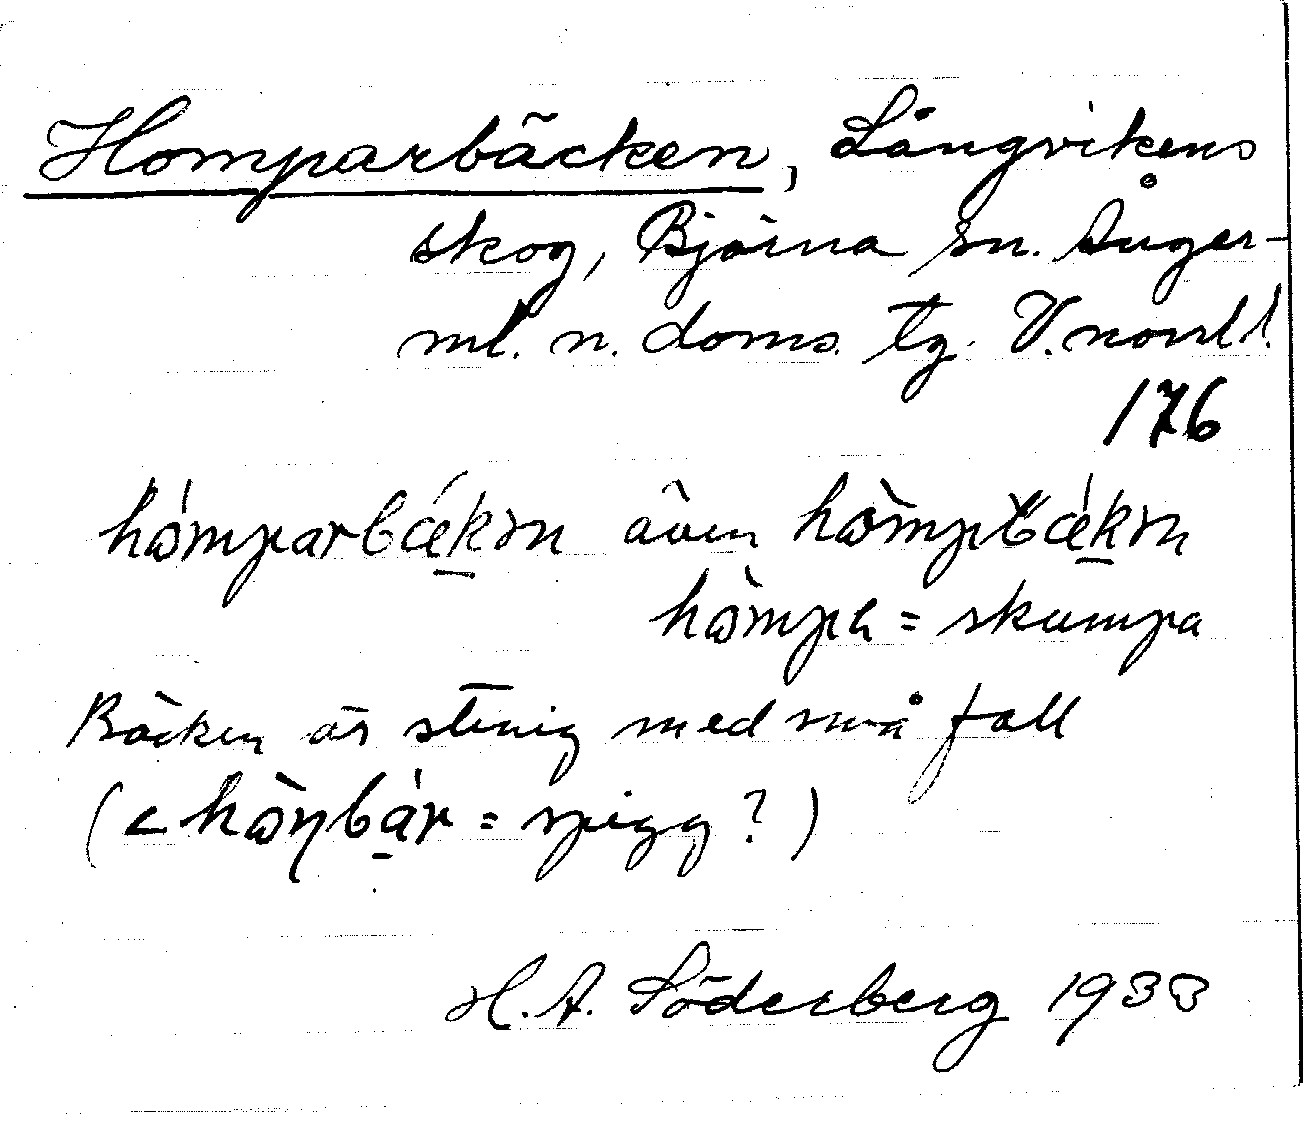 Homparbäcken, Långvikens
skog, Björna sn. Ånger-
ml. n. doms. tg. V. norrl.
176
hómparbǽkən även hòmpbǽkən
hòmpa = skumpa
Bäcken är stenig med små fall
(< hòŋbár = spigg?)
H. A. Söderberg 1933